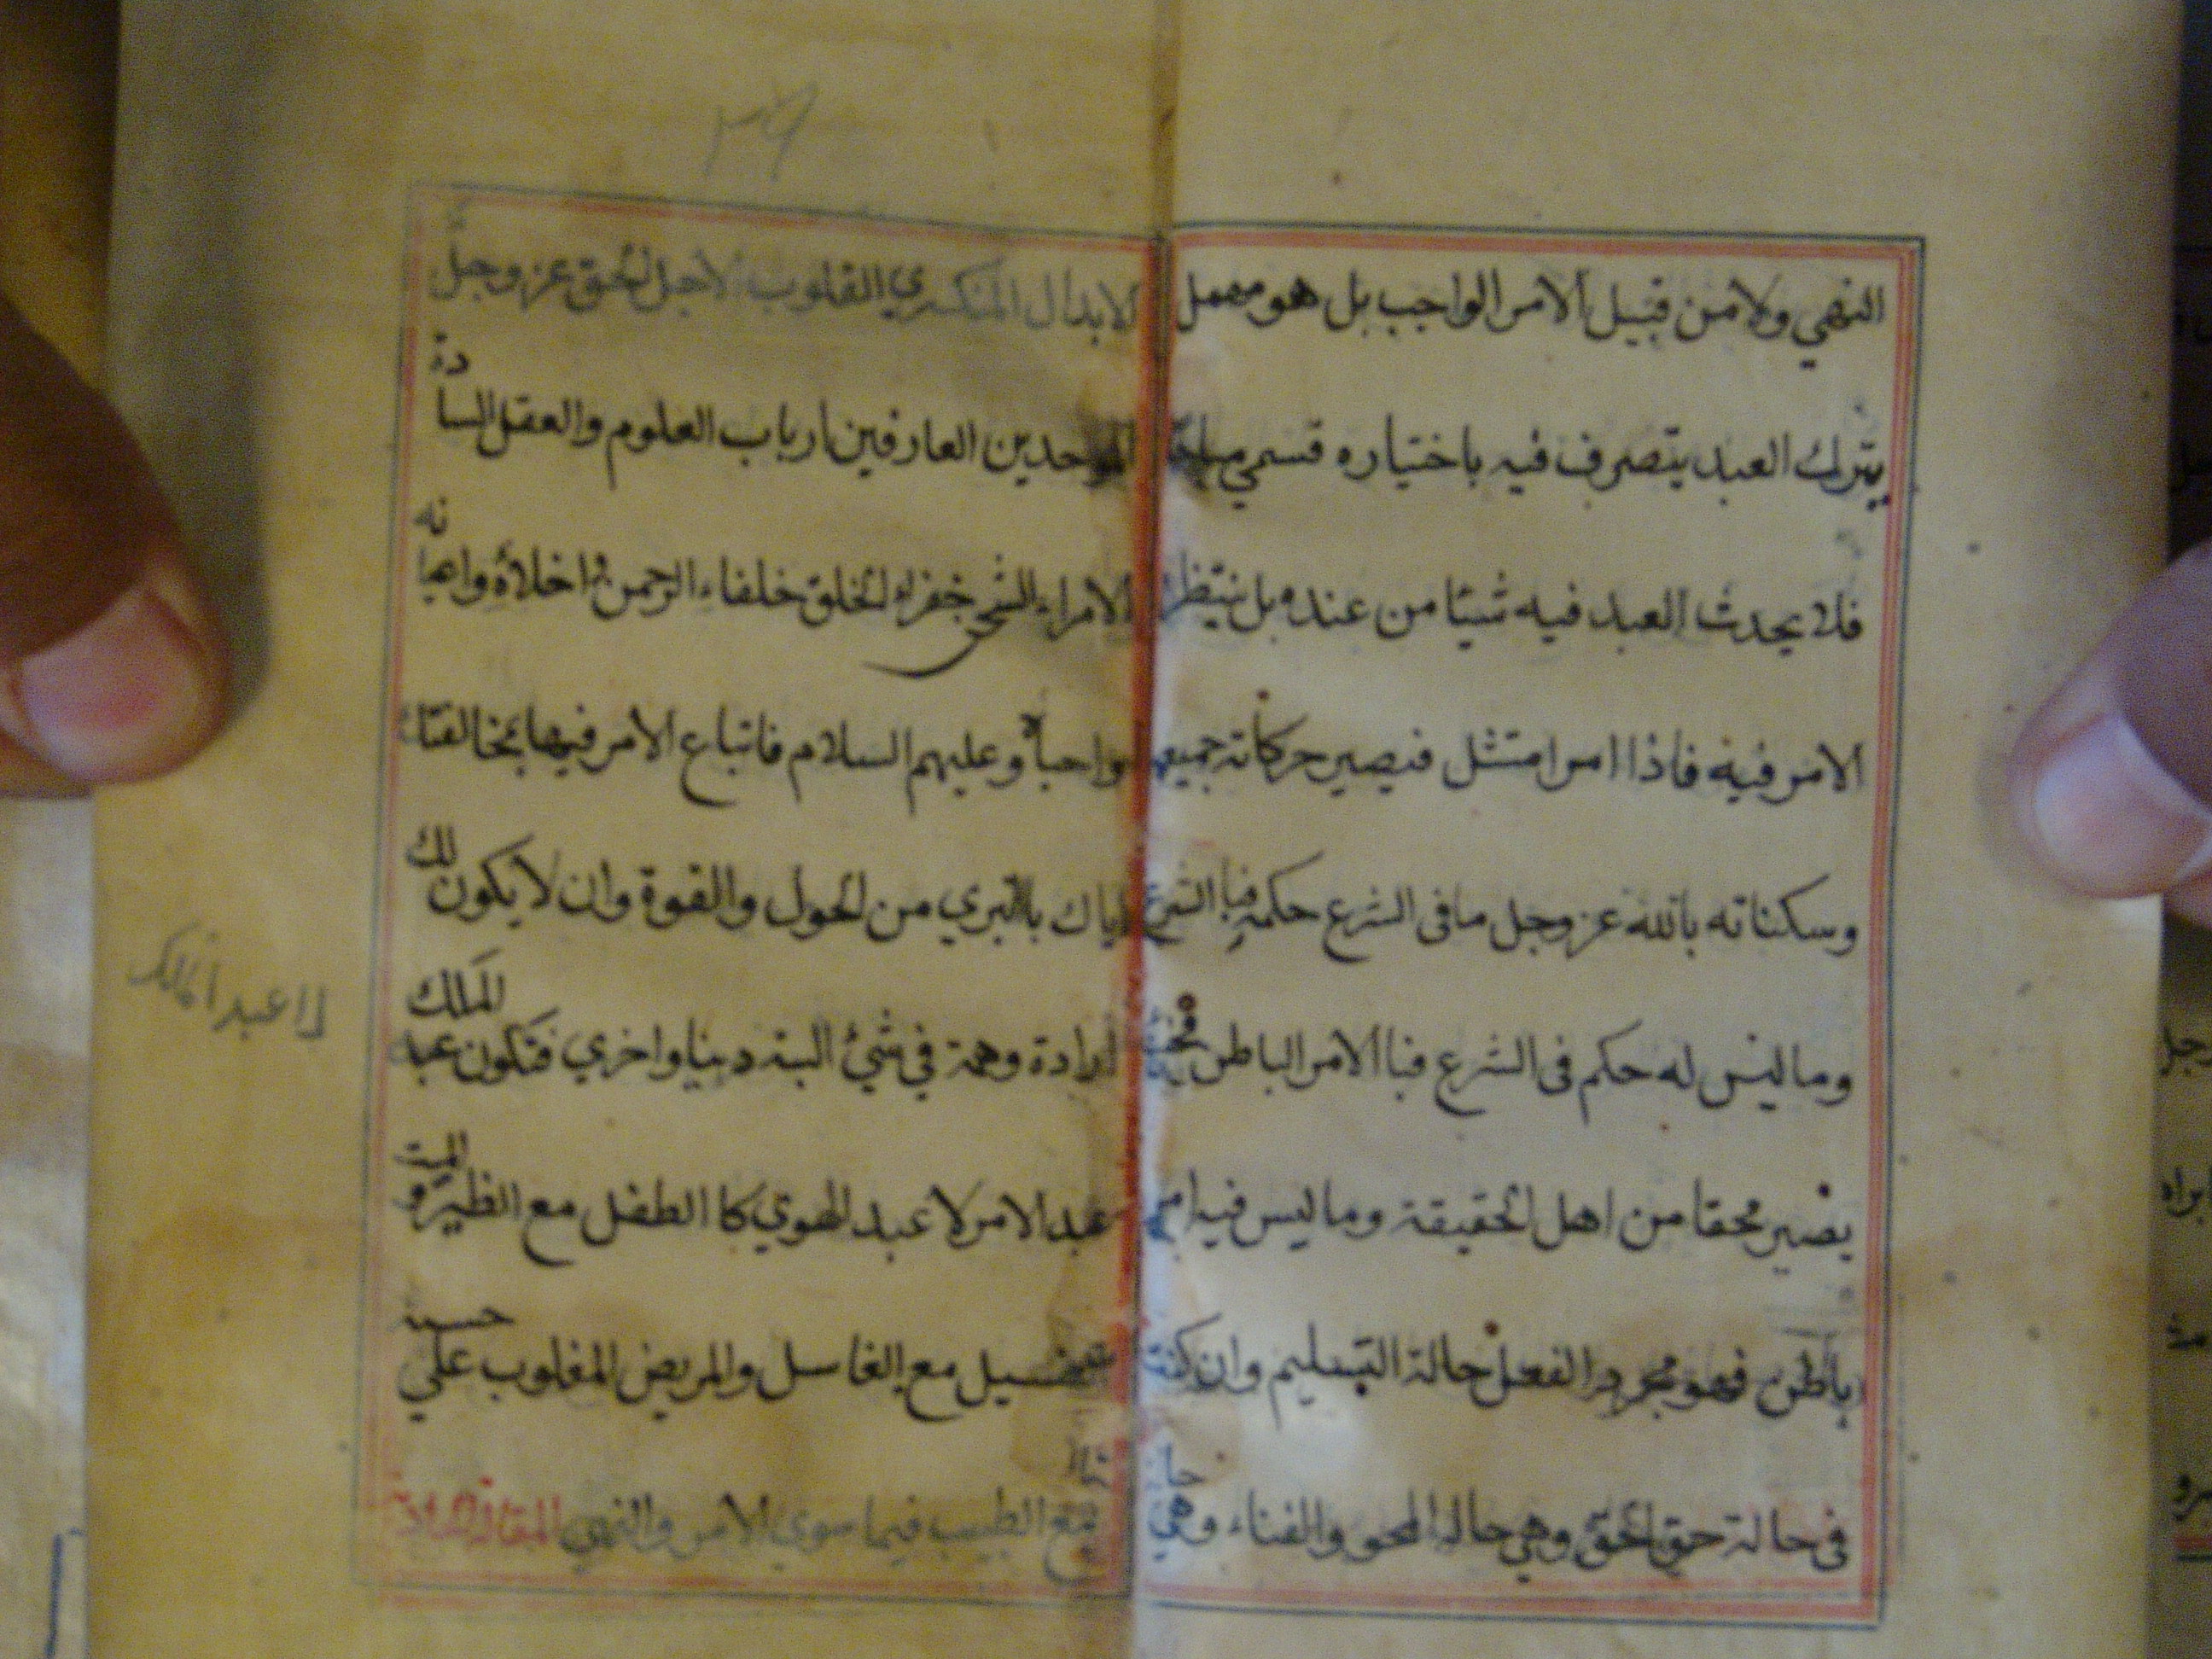 النهي ولا من قبيل الامر الواجب بل هو مهمل
يترك العبد يتصرف فيه باختياره فسمي مباحا
فلا يحدث العبد فيه شيئا من عنده بل ينتظر
الامر فيه فاذا امر امتثل فيصير حركاته جميعها
وسكناته بالله عز وجل ما فى الشرع حكمه فبا الشرع
وما ليس له حكم فى الشرع فبا الامر الباطن فحينئذ
يصير محقا من اهل الحقيقة وما ليس فيه امر
باطن فهو مجرد الفعل حالة التسليم وان كنت
فى حالة حق الحق وهي حالة المحو والفناء وهي حالة
٢٩
الابدال المنكسري القلوب لاجل الحق عز وجل
الموحدين العارفين ارباب العلوم والعقل السادة
الامراء الشحن خفراء الخلق خلفاء الرحمن واخلائه واعيانه
واحباه وعليهم السلام فاتباع الامر فيها بمخالفتك
اياك بالتبري من الحول والقوة وان لا يكون لك
ارادة وهمة في شئ البتة دينا واخري فتكون عبد الملك
لا عبد الملك
عبد الامر لا عبد الهوي كا الطفل مع الظير والميت
الغسيل مع الغاسل والمريض المغلوب علي حسه
مع الطبيب فيما سوي الامر والنهي المقالة